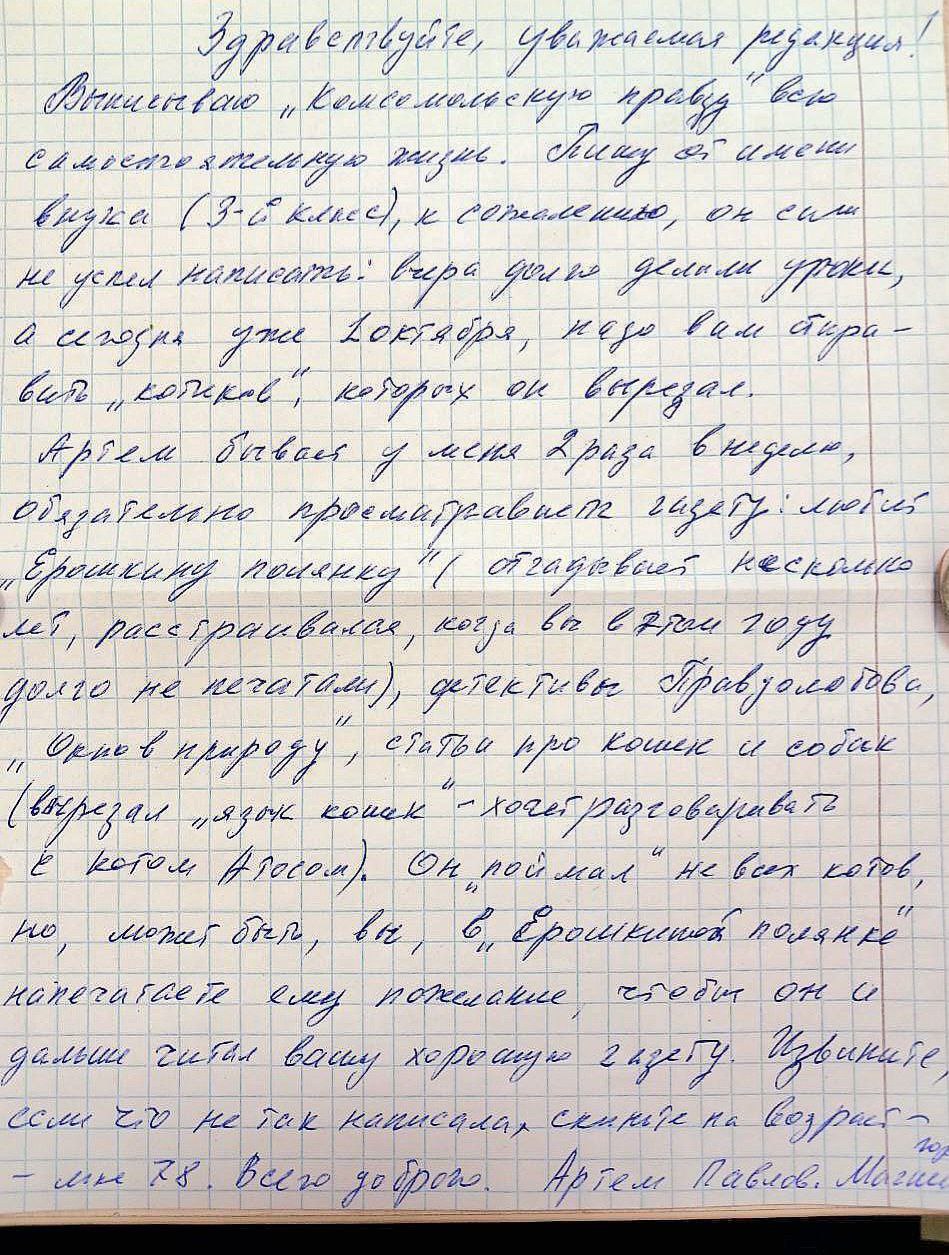 Здравствуйте, уважаемая редакция!
Выписываю „Комсомольскую правду" всю
самостоятельную жизнь. Пишу от имени
внука (3-й класс), к сожалению, он сам
не успел написать: вчера долго делали уроки,
а сегодня уже 1 октября, надо вам отпра-
вить „котиков", которых он вырезал.
Артем бывает у меня 2 раза в неделю,
обязательно просматривает газету: любит
„Ерошкину полянку" (отгадывает несколько
лет, расстраивался, когда вы в этом году
долго не печатали), детективы Правдолюбова,
„Окно в природу", статьи про кошек и собак
(вырезал „язык кошек" - хочет разговаривать
с котом Атосом). Он „поймал" не всех котов,
но, может быть, вы, в „Ерошкиной полянке"
напечатаете ему пожелание, чтобы он и
дальше читал вашу хорошую газету. Извините,
если что не так написала, скиньте на возраст -
- мне 78. Всего доброго. Артем Павлов.